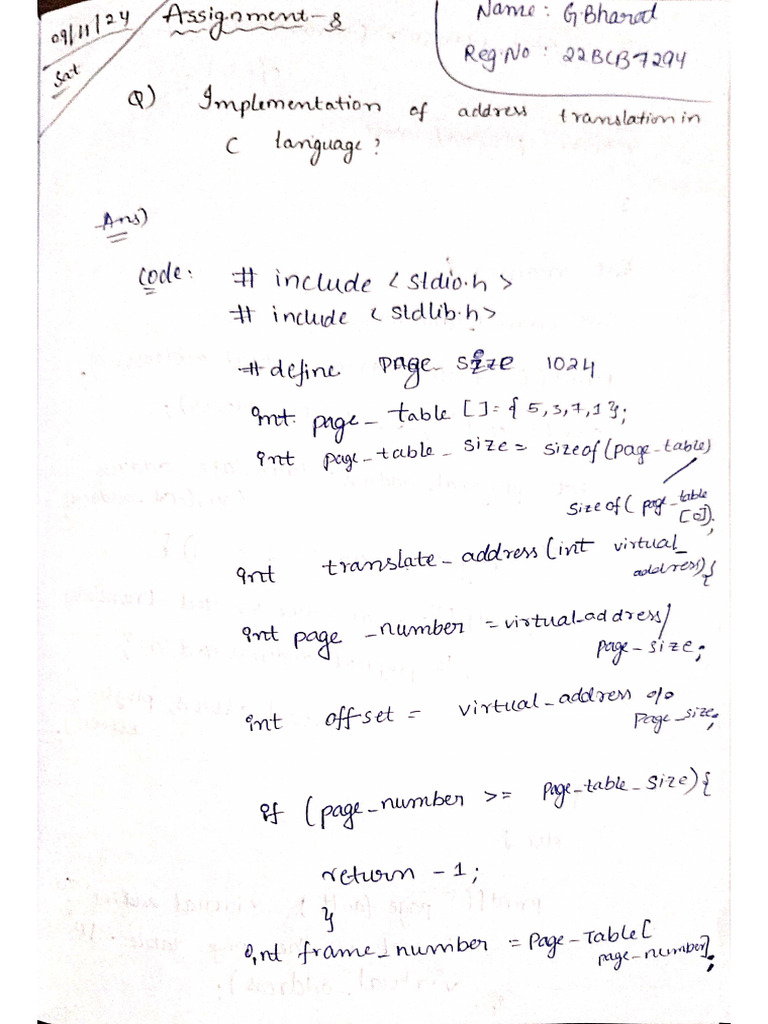 09/11/24
Sat
Assignment-8
Name: G.Bharad
Reg.No: 22BCB7294
Q) Implementation of address translation in
C language?
Ans)
Code: # include <stdio.h>
# include <stdlib.h>
#define page size 1024
int page_table []={5,3,7,1};
int page_table_size = sizeof(page_table)
/
sizeof(page_table
[0]);
int translate_address(int virtual_
address){
int page_number = virtual_address/
page_size;
int offset = virtual_address %
page_size;
if (page_number >= page_table_size){
return -1;
}
int frame_number = page_Table[
page_number];